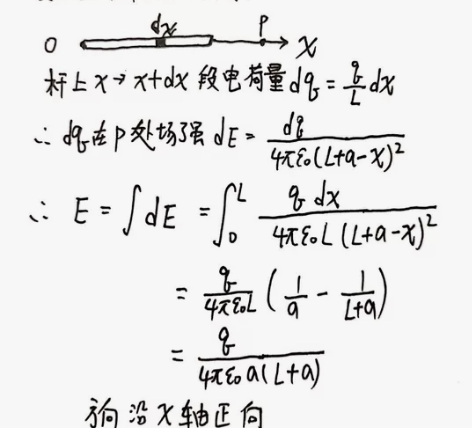 dx
O P X
杆上 x→x+dx 段电荷量 dq = q/L dx
∴ dq在P处场强 dE = dq/(4πε₀(L+a-x)²)
∴ E = ∫dE = ∫₀ᴸ q dx/(4πε₀L(L+a-x)²)
= q/(4πε₀L) (1/a - 1/(L+a))
= q/(4πε₀a(L+a))
方向沿X轴正向